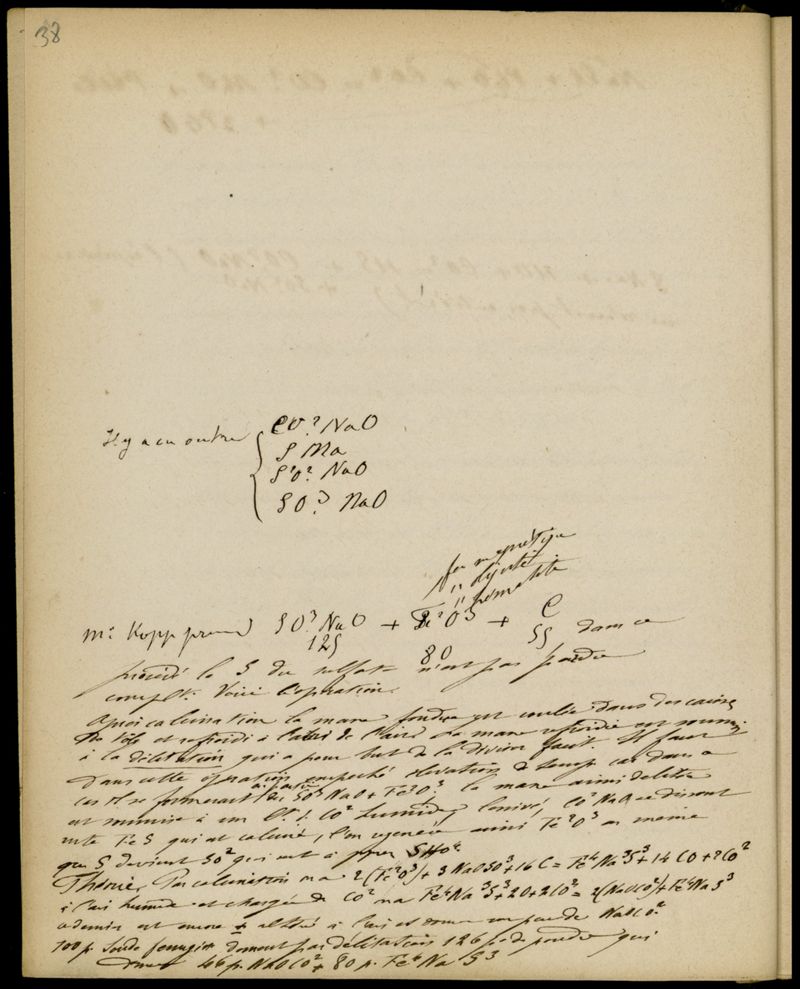 38
Il y a en outre { CO² NaO
S Na
S²O² NaO
SO³ NaO
fer magnétique
" oligiste
" hématite
Mr Kopp prend SO³ NaO + Fe²O³ + C dans ce
125 80 55
procédé le S du sulfate n'est pas perdu
complt. Voici l'opération.
Après calcination la masse fondue est coulée dans des caisses
de tôle et refroidi à l'abri de l'air. La masse refroidie est soumise
à la délitation qui a pour but de la diviser Il faut
dans cette opération empêcher élévation de temp. car dans ce
cas il se formerait SO³ NaO + Fe²O³ la masse ainsi delitée
est soumise à un CO² humide, lessivé, CO² NaO se dissout
reste FeS qui est calciné, l'on régénère ainsi Fe²O³ en même
que S devient SO² qui sert à SHO⁴
Théorie. Par calcination on a 2(Fe²O³) + 3 NaOSO³ + 16 C = Fe⁴Na³S³ + 14 CO + 2CO²
à l'air humide et chargé de CO² on a Fe⁴Na³S³ + 2O + 2CO² = 2(NaOCO²) + Fe⁴NaS³
ce dernier est encore altéré à l'air et donne un peu de NaOCO²
100 p. Soude donnent par délitation 126 p. de poudre qui
donne 46 p. NaOCO² + 80 p. Fe⁴NaS³